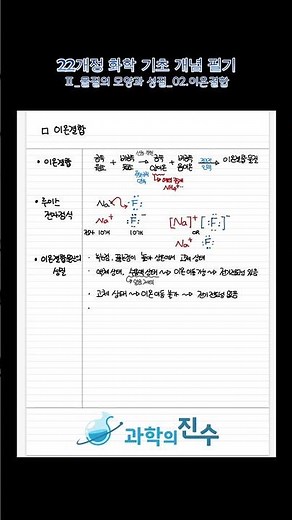 22개정 화학 기초 개념 필기
Ⅱ_물질의 모양과 성질_02.이온결합
□ 이온결합
• 이온결합
금속 비금속 금속 비금속 이온결합 물질
원소 원소 양이온 음이온
• 루이스 Na F Na⁺ F⁻ [Na]⁺[F]⁻
전자점식
전자 10개 10개 OR
Na⁺ F⁻
• 이온결합물질의 · 녹는점, 끓는점이 높아 상온에서 고체 상태
성질
· 액체 상태, 수용액 상태 → 이온 이동 가능 → 전기전도성 있음
· 고체 상태 → 이온 이동 불가 → 전기전도성 없음
과학의진수